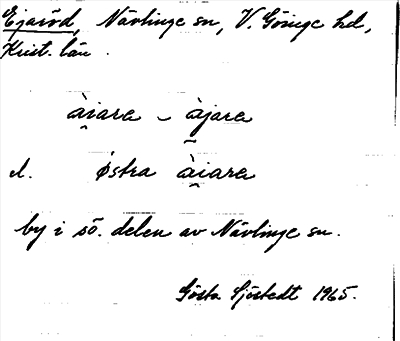 Ejaröd, Nävlinge sn, V. Göinge hd,
Krist. län.
àiara ~ àjara
el. østra àiara
by i sö. delen av Nävlinge sn.
Gösta Sjöstedt 1965.